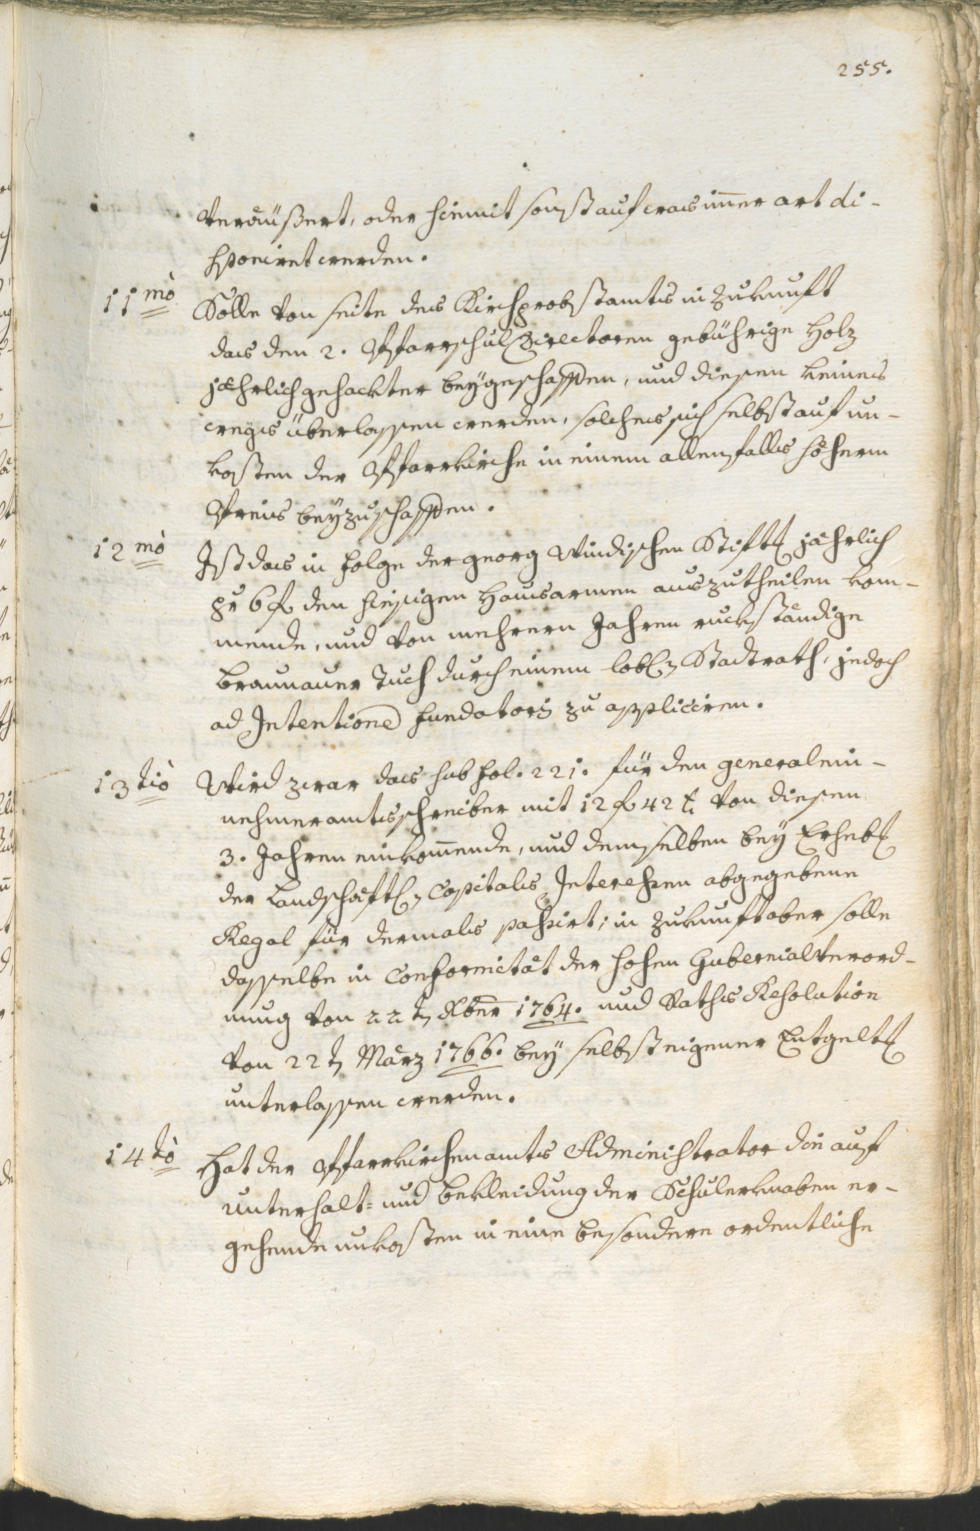 255.
veräußert, oder hiemit sonst auf was imer art di-
sponiret werden.
11mò Solle von seite des Kirchprobstamts in Zukunft
das den 2. Pfarrschul Directoren gebührige Holz
jährlich gehackter beygeschaffen, und diesen keines
weegs überlassen werden, solches sich selbst auf un-
kosten der Pfarrkirche in einem allenfalls höherm
Preis beyzuschaffen.
12mò Ist das in folge der georg Windischen Stiftg jährlich
pr 6 f den hiesigen Hausarmen auszutheilen kom-
mende, und von mehrern Jahren ruckständige
Braunauer Tuch durch einem lobl. Stadtrath, jedoch
ad Intentione fundatoris zu appliciren.
13tiò Wird zwar das sub fol. 221. für den general ein-
nehmeramtsschreiber mit 12 f 42 x von diesen
3. Jahren einkommende, und demselben bey Erhebg
der Landschäftl. Capitals Interessen abgegebene
Regal für dermals passirt; in Zukunft aber solle
dasselbe in Conformität der hohen Gubernialverord-
nung von 22t Xber 1764. und Raths Resolution
von 22t März 1766. bey selbst eigener Entgeltg
unterlassen werden.
14tò Hat der Pfarrkirchenamts Administrator die auf
unterhalt- und bekleidung der Schulerknaben er-
gehende unkosten in eine besondere ordentliche